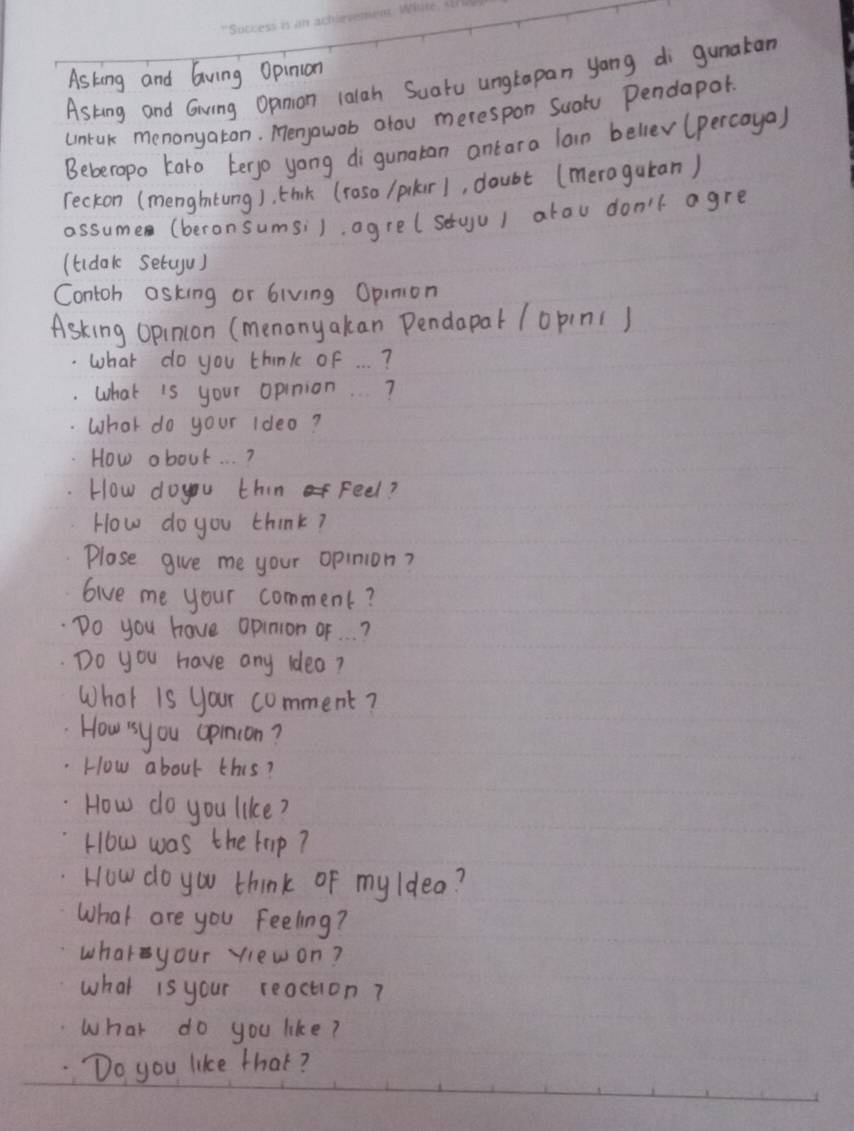 "Success is an achievement. White,
Asking and Giving Opinion
Asking and Giving Opinion ialah Suatu ungkapan yang di gunakan
untuk menanyakan. Menjawab atau merespon Suatu Pendapat.
Beberapa kata kerja yang di gunakan antara lain believ (percaya)
reckon (menghitung), thik (rasa/pikir), doubt (meragukan)
assume (beransumsi), agre (setuju) atau don't agre
(tidak setuju)
Contoh asking or Giving Opinion
Asking Opinion (menanyakan Pendapat / opini)
· What do you think of ... ?
· What is your opinion ... ?
· What do your ideo ?
· How about ... ?
· How do you thin Feel ?
· How do you think ?
· Plase give me your opinion ?
· Give me your comment ?
· Do you have opinion of ... ?
· Do you have any ideo ?
What is your comment ?
· How is you opinion ?
· How about this ?
· How do you like ?
· How was the trip ?
· How do you think of my Idea ?
· What are you Feeling ?
· what your view on ?
· what is your reaction ?
· What do you like ?
· Do you like that ?